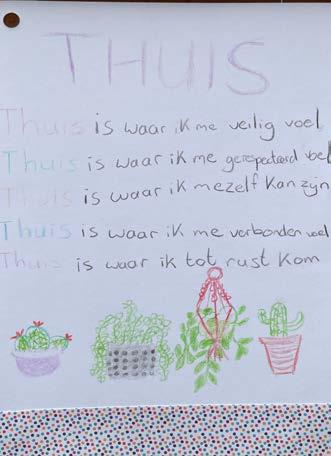 THUIS
Thuis is waar ik me veilig voel
Thuis is waar ik me gerespecteerd voel
Thuis is waar ik mezelf kan zijn
Thuis is waar ik me verbonden voel
Thuis is waar ik tot rust kom